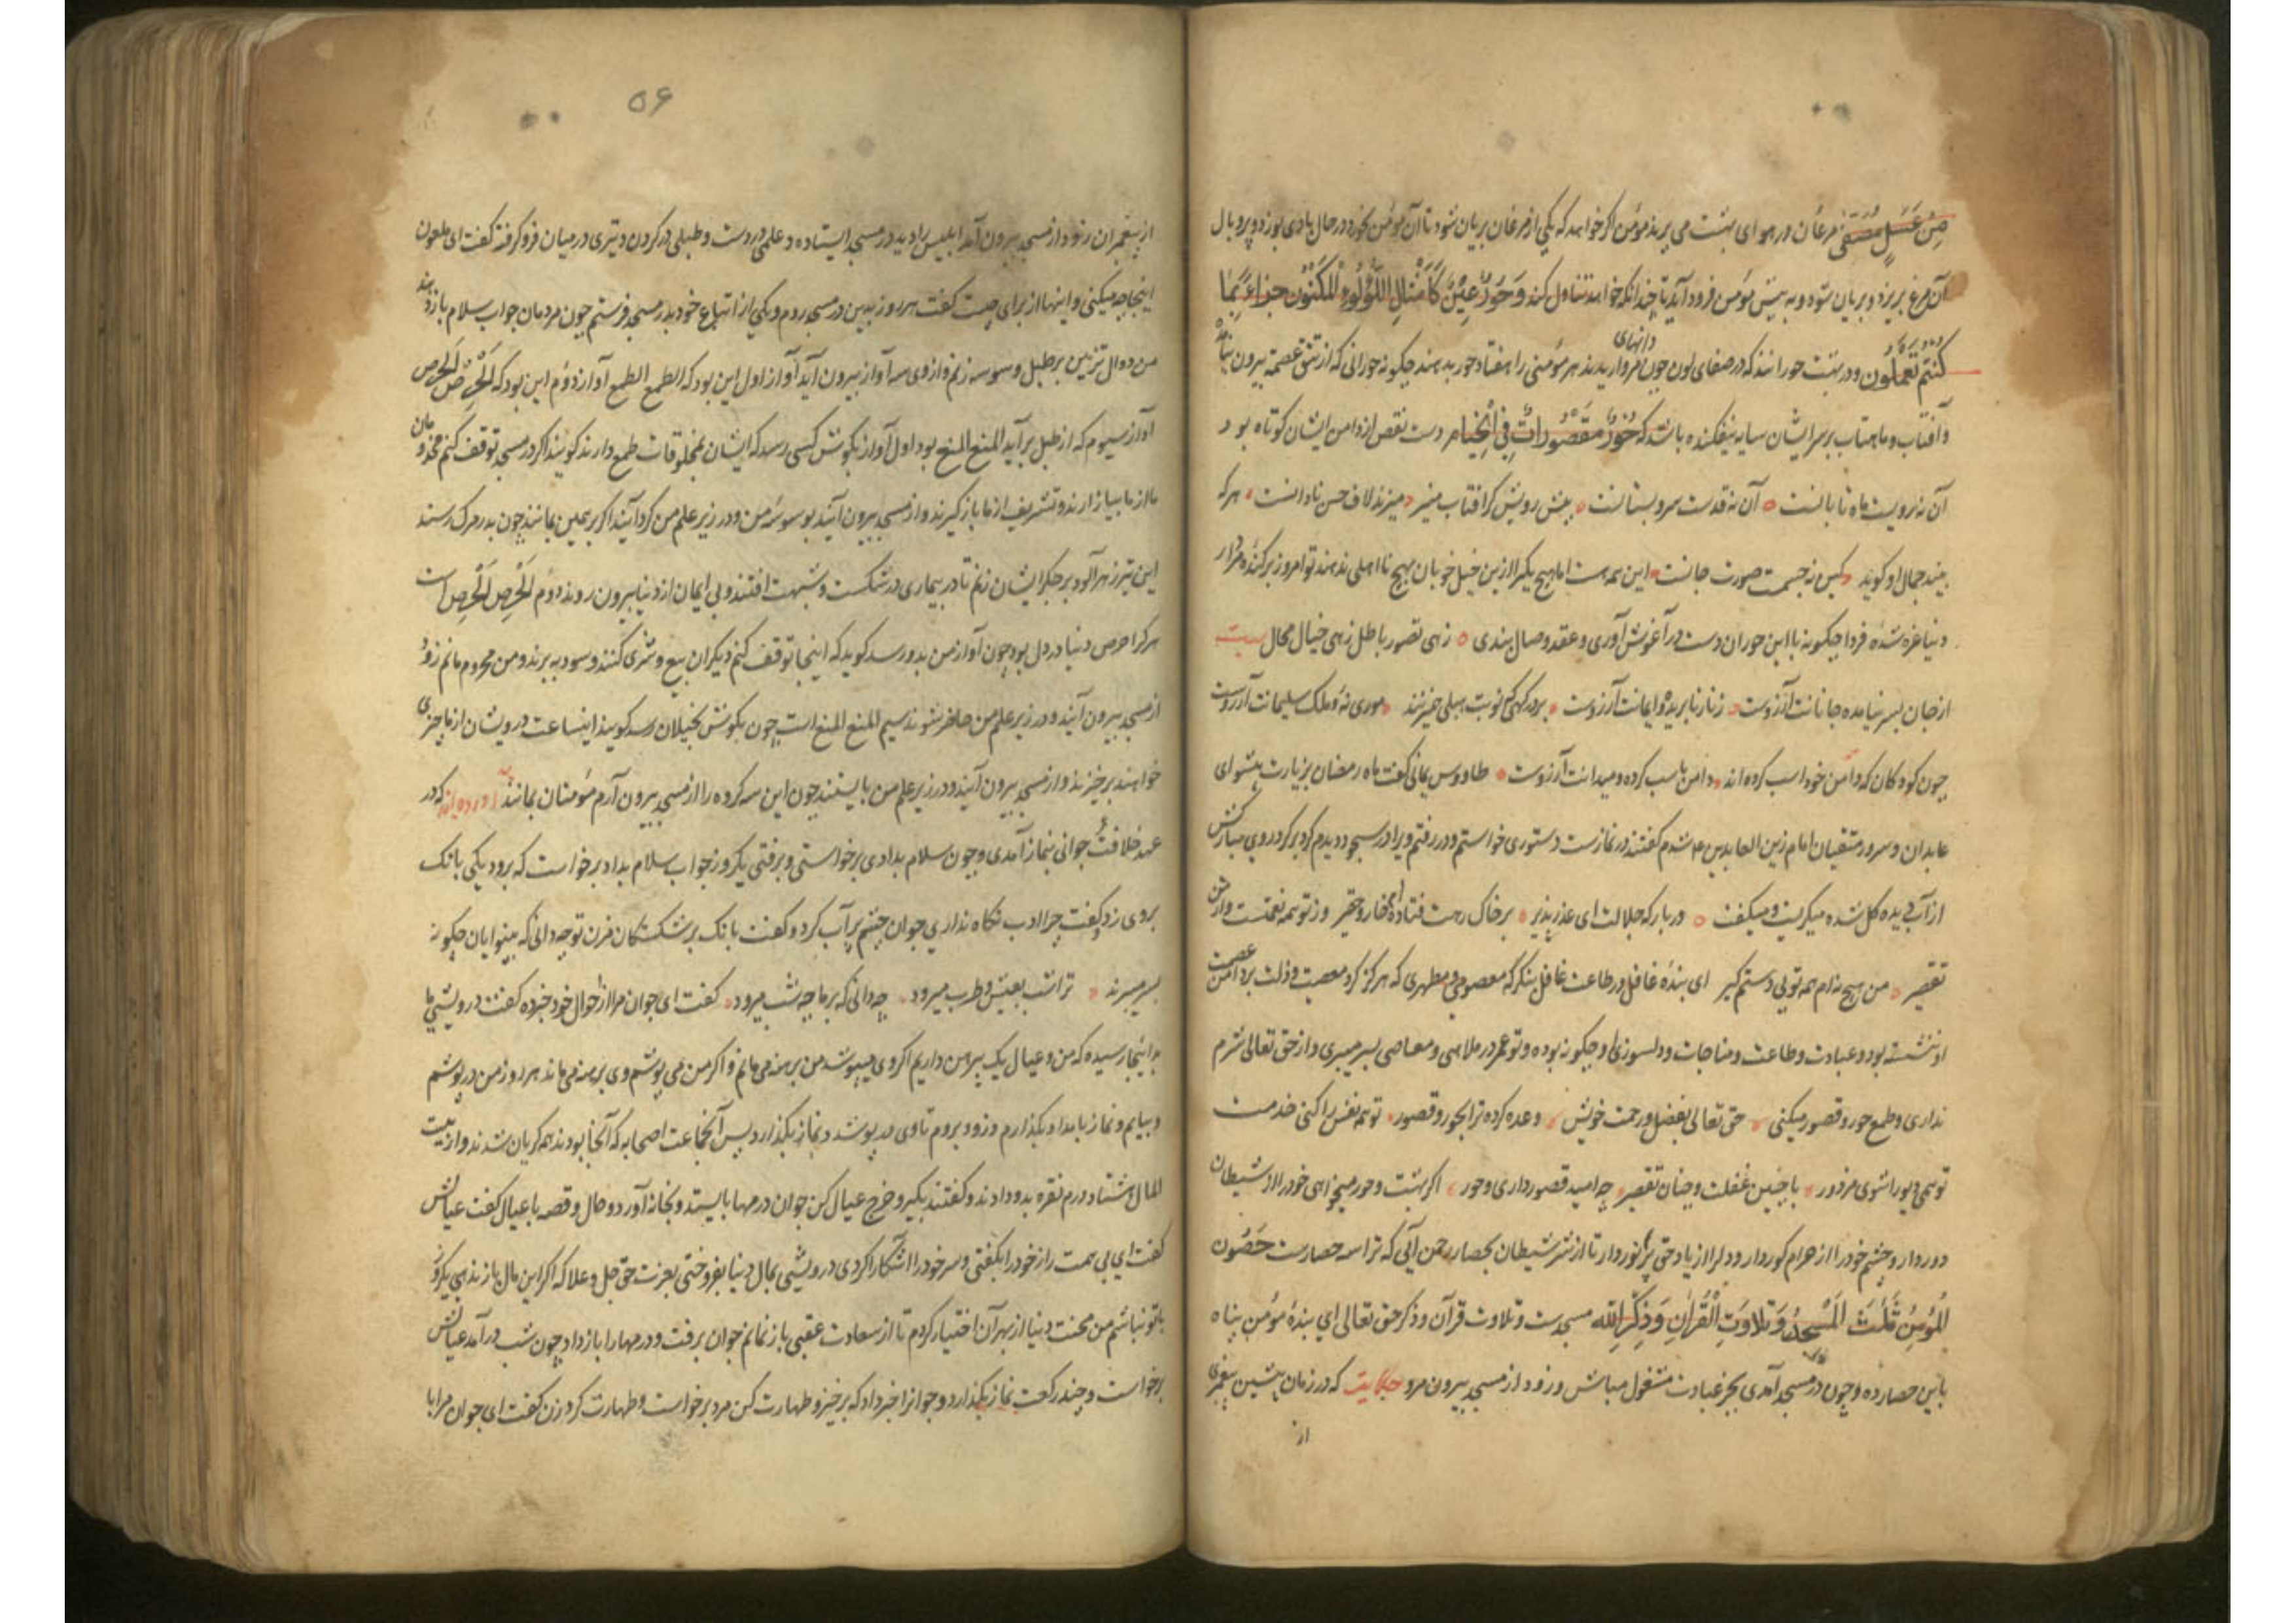 مِنْ عَسَلٍ مُصَفّىً مرغان در هوای بهشت می پرند مؤمن اگر خواهد که یکی از مرغان بریان شود تا آن مؤمن بخورد در حال بادی بوزد و پر و بال
آن مرغ بریزد و بریان شود و به پیش مؤمن فرود آید تا چندانکه خواهد تناول کند وَحُورٌ عِينٌ كَأَمْثَالِ اللُّؤْلُؤِ الْمَكْنُونِ جزاءً بِمَا
كُنْتُم تَعْمَلُون و در بهشت حورانند که در صفای لون چون دانهای مروارید هر مؤمنی را هفتاد حور بدهند چگونه حورانی که از تتق عصمت بیرون
و آفتاب و ماهتاب بر سر ایشان سایه نیفکنده باشد که حُورٌ مَقْصُورَاتٌ فِي الْخِيَامِ دست نقص از دامن ایشان کوتاه بود
آن نه رویست ماه تابانست آن نه قدست سرو بستانست پیش رویش گر آفتاب منیر میزند لاف حسن نادانست هر که
بیند جمال او گوید کین نه جسمت صورت جانست این همه هست اما هیچ یکی را ازین خیل خوبان بهیچ نااهلی ندهند تو امروز بر گنده مردار
دنیا غره شده فردا چگونه با این حوران دست در آغوش آوری و عقد وصال بندی زهی تصور باطل زهی خیال محال بیت
از جان بسر نیامده جانانت آرزوست زنار نابریده و ایمانت آرزوست بر درگهی که نوبت هبلی میزنند موری نه و ملک سلیمانت آرزوست
چون کودکان که دامن خود اسب کرده اند دامن باسب کرده و میدانت آرزوست طاووس یمانی گفت ماه رمضان بزیارت پیشوای
عابدان و سرور متقیان امام زین العابدین ع شدم گفتند در نمازست دستوری خواستم و در رفتم ویرا در سجود دیدم گرد بر گرد روی مبارکش
از آب دیده گل شده میگریست و میگفت در بارگه جلالت ای عذر پذیر بر خاک رهت فتاده ام خار و حقیر وز تو همه نعمتست وز من
تقصیر من هیچ نه ام همه تویی دستم گیر ای بنده غافل در طاعت غافل بنگر که معصومی و مطهری که هرگز گرد معصیت و ذلت بر دامن عصمت
او ننشسته بود و عبادت و طاعت و مناجات و دلسوزی او چگونه بوده و تو عمر در ملاهی و معاصی بسر میبری و از حق تعالی شرم
نداری و طمع حور و قصور میکنی حق تعالی بفضل و رحمت خویش وعده کرده ترا بحور و قصور تو همه نفس را کنی خدمت
تو همی دیو را شوی مزدور با چنین غفلت و چنان تقصیر چه امید قصور داری و حور اگر بهشت و حور میخواهی خود را از شیطان
دور دار و چشم خود را از حرام کور دار و دل را از یاد حق پرنور دار تا از شر شیطان بحصار رحمن آیی که ترا سه حصارست حُصُون
الْمُؤمِنِ ثَلٰثٌ الْمَسْجِدُ وَتِلَاوَتِ الْقُرْاٰنِ وَذِكْرِ الله مسجدست و تلاوت قرآن و ذکر حق تعالی ای بنده مؤمن پناه
باین حصار ده و چون در مسجد آمدی بجز عبادت مشغول مباش و زود از مسجد بیرون مرو حکایت که در زمان پیشین پیغمبری
از
۵۶
از پیغمبران زود از مسجد بیرون آمد ابلیس را دید در مسجد ایستاده و علمی در دست و طبلی در گردن و تیری در میان فرو کرفته گفت ای ملعون
اینجا چه میکنی و اینها از برای چیست گفت هر روز بدین در مسجد روم و یکی از اتباع خود بدر مسجد فرستم چون مردمان جواب سلام باز دهند
من دوال تزیین بر طبل وسوسه زنم و از وی سه آواز بیرون آید آواز اول این بود که الطمع الطمع آواز دوم این بود که اَلْحِرْص اَلْحِرْص
آواز سیوم که از طبل بر آید المنع المنع بود اول آواز بگوش کسی رسد که ایشان بمخلوقات طمع دارند گویند اگر در مسجد توقف کنم مخدومان
ما از ما بیازارند و تشریف از ما باز گیرند و از مسجد بیرون آیند بوسوسه من و در زیر علم من گرد آیند اگر بر همین بمانند چون بدر مرگ رسند
این تیر زهرآلود بر جگر ایشان زنم تا در بیماری در شکست و شبهت افتند و بی ایمان از دنیا بیرون روند دوم اَلْحِرْص اَلْحِرْص است
هر کرا حرص دنیا در دل بود چون آواز من بدو رسد گوید که اینجا توقف کنم دیگران بیع و شری کنند و سود ببرند و من محروم مانم زود
از مسجد بیرون آیند و در زیر علم من حاضر شوند سیم المنع المنع است چون بگوش بخیلان رسد گویند اینساعت درویشان از ما چیزی
خواهند برخیزند و از مسجد بیرون آیند و در زیر علم من بایستند چون این سه گروه را از مسجد بیرون آرم مؤمنان بمانند آورده اند که در
عهد خلافت جوانی بنماز آمدی و چون سلام بدادی برخواستی و برفتی یکروز جواب سلام بداد برخواست که برود یکی بانک
بروی زد و گفت چرا ادب نگاه نداری جوان چشم پر آب کرد و گفت بانک بر شکستگان مزن تو چه دانی که بینوایان چگونه
بسر میبرند ترا شب بعیش و طرب میرود چه دانی که بر ما چه شب میرود گفت ای جوان مرا از احوال خود خبر ده گفت درویشی ما
بدانجا رسیده که من و عیال یک پیرهن داریم اگر وی میپوشد من برهنه می مانم و اگر من می پوشم وی برهنه می ماند هر روز من در پوشم
و بیایم و نماز بامداد بگذارم و زود بروم تا وی در پوشد و نماز بگذارد پس آنجماعت اصحابه که آنجا بودند همه گریان شدند و از بیت
المال هشتاد درم نقره بدو دادند و گفتند بگیر و خرج عیال کن جوان درمها بایستد و بخانه آورد و حال و قصه با عیال گفت عیالش
گفت ای بی همت راز خود را بگفتی و سر خود را آشکارا کردی درویشی بمال دنیا بفروختی بعزت حق جل و علا که اگر این مال باز ندهی یکروز
با تو نباشم من محنت دنیا از بهر آن اختیار کردم تا از سعادت عقبی باز نمانم جوان برفت و درمها را باز داد چون شب در آمد عیالش
برخواست و چند رکعت نماز بگذارد و جوانرا خبر داد که برخیز و طهارت کن مرد برخواست و طهارت کرد زن گفت ای جوان مرا با